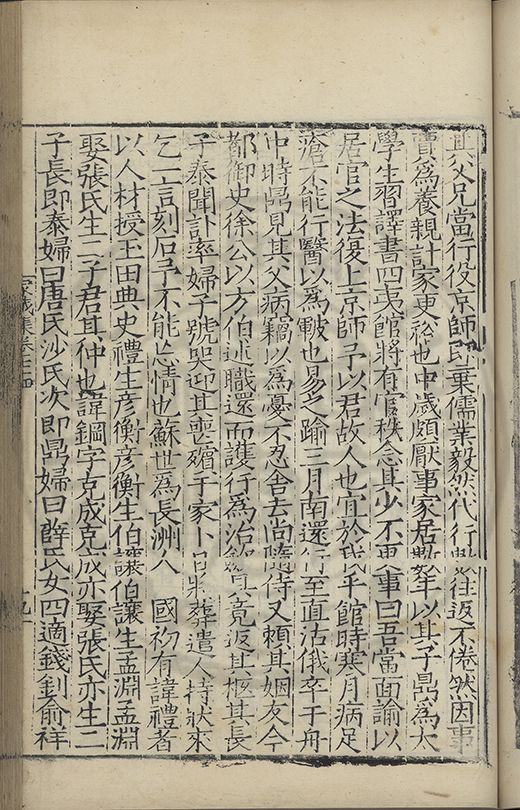 其父兄當行役京師即棄儒業毅然代行數往返不倦然因事
賈為養親計家更裕也中歲頗厭事家居數年以其子鼎為太
學生習譯書四夷館將有官秩念其少不更事曰吾當面諭以
居官之法復上京師予以君故人也宜於我乎館時寒月病足
瘡不能行醫以為皸也易之踰三月南還行至直沽俄卒于舟
中時鼎見其父病竊以為憂不忍舍去尚隨侍又賴其姻友今
都御史徐公以方伯述職還而護行為治具竟返其柩其長
子泰聞訃率婦子號哭迎其喪殯于家卜日將葬遣人持狀來
乞一言刻石予不能忘情也蘇世為長洲人 國初有諱禮者
以人材授玉田典史禮生彥衡彥衡生伯讓伯讓生孟淵孟淵
娶張氏生二子君其仲也諱鋼字克成克成亦娶張氏亦生二
子長即泰婦曰唐氏沙氏次即鼎婦曰薛氏女四適錢釗俞祥